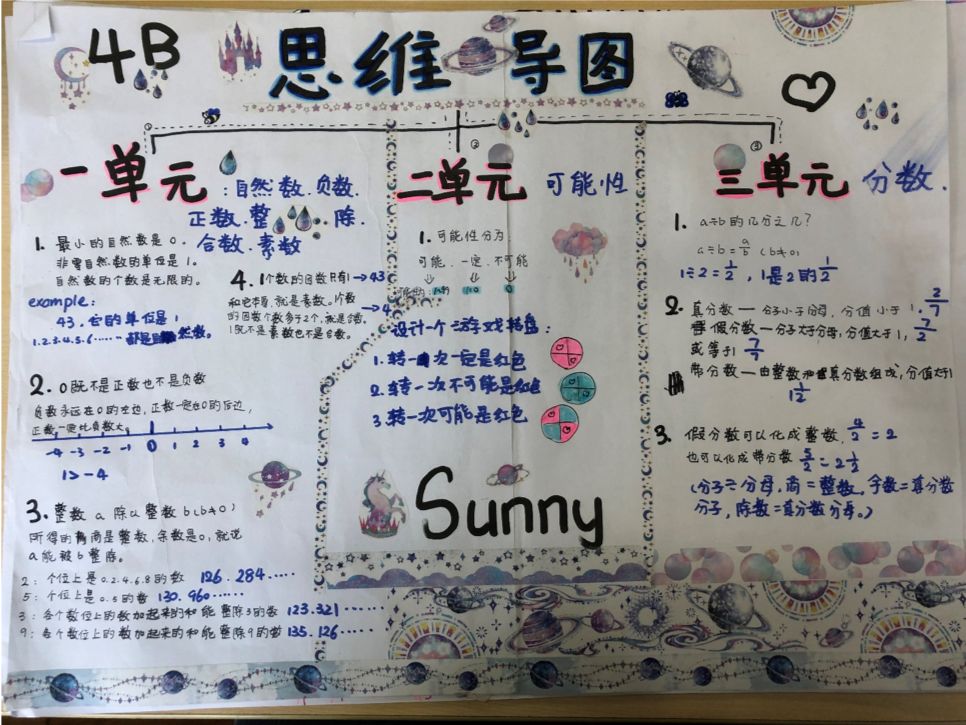 4B
思维导图
①
②
③
一单元
:自然数.负数.
正数.整.除.
合数.素数
1. 最小的自然数是0.
非零自然数的单位是1.
自然数的个数是无限的.
example:
43.它的单位是1
1.2.3.4.5.6……都是自然数.
4. 1个数的因数只有1→43
和它本身,就是素数。1个数
的因数个数多于2个,就是合数,→4
1既不是素数也不是合数.
2. 0既不是正数也不是负数
负数永远在0的左边,正数一定在0的右边,
正数一定比负数大。
-4 -3 -2 -1 0 1 2 3 4
1>-4
3. 整数a除以整数b(b≠0)
所得的商是整数,余数是0,就说
a能被b整除。
2: 个位上是0.2.4.6.8的数 126.284.….
5: 个位上是0.5的数 130.960……
3: 各个数位上的数加起来的和能整除3的数 123.321……
9: 各个数位上的数加起来的和能整除9的数 135.126……
二单元 可能性
1. 可能性分为:
可能.一定.不可能
↓ ↓ ↓
设计一个游戏转盘:
1. 转一次一定是红色
2. 转一次不可能是红色
3 转一次可能是红色
Sunny
三单元 分数.
1. a÷b的几分之几?
a÷b=a/b (b≠0)
1÷2=1/2, 1是2的1/2
2. 真分数—分子小于分母,分值小于1. 2/7
假分数—分子大于分母,分值大于1, 7/2
或等于1 7/7
带分数—由整数和真分数组成,分值大于1
1 1/2
3. 假分数可以化成整数. 4/2=2
也可以化成带分数 5/2=2 1/2
(分子÷分母,商=整数,余数=真分数
分子,除数=真分数分母。)